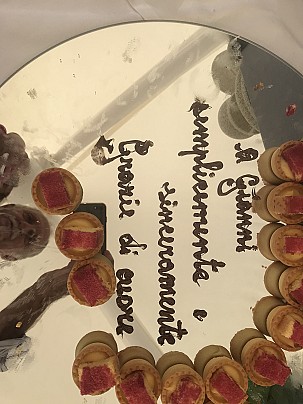 A Gianni
semplicemente e
sinceramente
Grazie di cuore